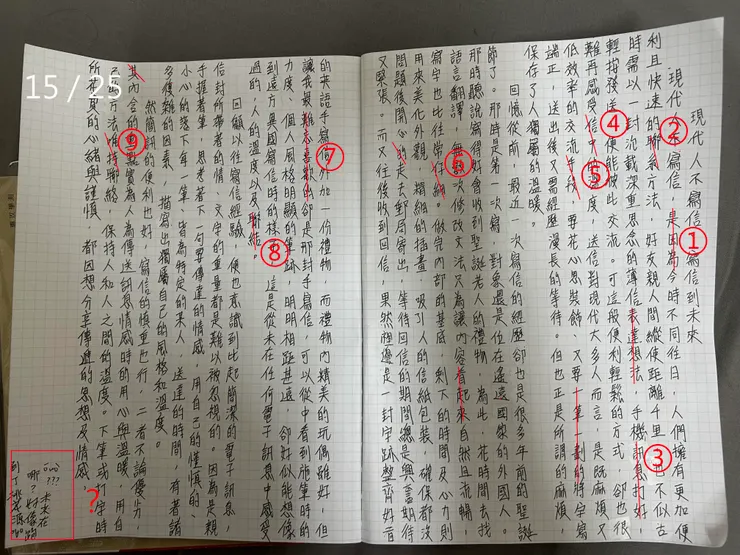 現代人不寫信 寫信到未來
現代人不寫信，是因為今時不同往日，人們擁有更加便
利且快速的聯系方法，好友親人間縱使距離千里，已不似古
時需以一封沉載深重思念的薄信表達想法，手機訊息打好，
輕按發送，便能彼此交流。可這般便利輕鬆的方式，卻也很
難再感受信中的溫度，送信對現代大多人而言，是既麻煩又
低效率的交流手技，要花心思裝飾，又要一筆一劃的特定寫
端正，送出後又需經歷漫長的等待。但也正是所謂的麻煩，
保存了人獨屬的溫暖。
回憶從前，最近一次寫信的經歷卻也是很多年前的聖誕
節了。那時是第一次寫信，對象還是位在遙遠國家的外國人。
那時聽說寫得好會收到聖誕老人的禮物，為此，花時間去找
語言翻譯，無數次修改文法又為讓內容看起來自然且流暢，
寫字也比往常仔細，做足內部的基底，剩下的時間及心力則
用來美化外觀，精細的插畫，吸引人的信紙包裝，確保都沒
問題後開心的走去郵局寄出，等待回信的期間總是興奮期待
又緊張。而又往後收到回信，果然裡邊是一封字跡整齊好看
的英語手寫信外加一份禮物，而禮物內精美的玩偶雖好，但
讓我最難忘喜歡的卻是那封手寫信，可以從中看到施筆時的
力度、個人風格明顯的筆跡，明明相距甚遠，卻好似能想像
到遠方異國寫信時的樣子，這是從未在任何電子訊息中感受
過的，人的溫度以及聯結。
回顧以往寫信經驗，便也意識到比起簡潔的電子訊息，
信封所帶著的情，文字的重量都是難以被忽視的。因為是親
手握著筆，思考著下一句要傳達的情感，用自己的謹慎的
小心的落下每一筆，皆為特定的某人，送達的時間，有著諸
多複雜的因素，描寫出獨屬自己的風格和溫度。
然簡訊的便利也好，寫信的慎重也行，二者不論優劣，
其內含的重點實為人為傳送訊息情感時的用心與溫暖，用自
己的方法維持聯絡，保持人和人之間的溫度。下筆或打字時
所花費的心緒與謹慎，都因想分享傳遞的思想及情感。
???未來在
哪？好像寫
到了挑戰源。
15/25
①
②
③
④
⑤
⑥
⑦
⑧
⑨
?